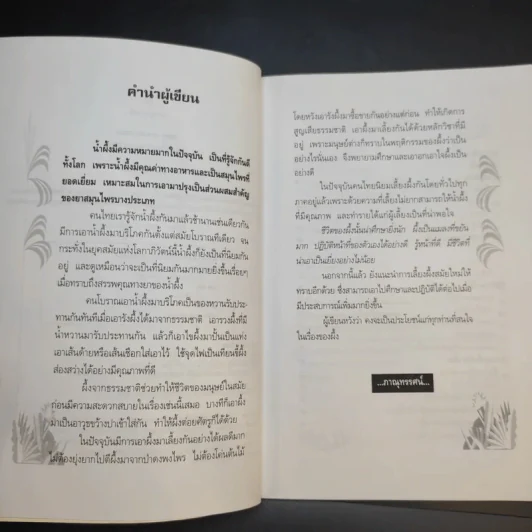 คำนำผู้เขียน
น้ำผึ้งมีความหมายมากในปัจจุบัน เป็นที่รู้จักกันดี
ทั่วโลก เพราะน้ำผึ้งมีคุณค่าทางอาหารและเป็นสมุนไพรที่
ยอดเยี่ยม เหมาะสมในการเอามาปรุงเป็นส่วนผสมสำคัญ
ของยาสมุนไพรบางประเภท
คนไทยเรารู้จักน้ำผึ้งกันมาแล้วช้านานเช่นเดียวกัน
มีการเอาน้ำผึ้งมาบริโภคกันตั้งแต่สมัยโบราณทีเดียว จน
กระทั่งในยุคสมัยแห่งโลกาภิวัตน์นี้น้ำผึ้งก็ยังเป็นที่นิยมกัน
อยู่ และดูเหมือนว่าจะเป็นที่นิยมกันมากมายยิ่งขึ้นเรื่อยๆ
เมื่อทราบถึงสรรพคุณทางยาของน้ำผึ้ง
คนโบราณเอาน้ำผึ้งมาบริโภคเป็นของหวานรับประ
ทานกันทันทีเมื่อเอารังผึ้งได้มาจากธรรมชาติ เอารวงผึ้งที่มี
น้ำหวานมารับประทานกัน แล้วก็เอาไขผึ้งมาปั้นเป็นแท่ง
เอาเส้นด้ายหรือเส้นเชือกใส่เอาไว้ ใช้จุดไฟเป็นเทียนขี้ผึ้ง
ส่องสว่างได้อย่างมีคุณภาพที่ดี
ผึ้งจากธรรมชาติช่วยทำให้ชีวิตของมนุษย์ในสมัย
ก่อนมีความสะดวกสบายในเรื่องเช่นนี้เสมอ บางทีก็เอาผึ้ง
มาเป็นอาวุธขว้างปาเข้าใส่กัน ทำให้ผึ้งต่อยศัตรูก็ได้ด้วย
ในปัจจุบันมีการเอาผึ้งมาเลี้ยงกันอย่างได้ผลดีมาก
ไม่ต้องยุ่งยากไปตีผึ้งมาจากป่าดงพงไพร ไม่ต้องโค่นต้นไม้
โดยหวังเอารังผึ้งมาซื้อขายกันอย่างแต่ก่อน ทำให้เกิดการ
สูญเสียธรรมชาติ เอาผึ้งมาเลี้ยงกันได้ด้วยหลักวิชาที่มี
อยู่ เพราะมนุษย์ต่างก็ทราบในพฤติกรรมของผึ้งว่าเป็น
อย่างไรนั่นเอง จึงพยายามศึกษาและเอาอกเอาใจผึ้งเป็น
อย่างดี
ในปัจจุบันคนไทยนิยมเลี้ยงผึ้งกันโดยทั่วไปทุก
ภาคอยู่แล้วเพราะด้วยความที่เลี้ยงไม่ยากสามารถให้น้ำผึ้ง
ที่มีคุณภาพ และทำรายได้แก่ผู้เลี้ยงเป็นที่น่าพอใจ
ชีวิตของผึ้งนั้นน่าศึกษายิ่งนัก ผึ้งเป็นแมลงที่ขยัน
มาก ปฏิบัติหน้าที่ของตัวเองได้อย่างดี รู้หน้าที่ดี มีชีวิตที่
น่าเอาเป็นเยี่ยงอย่างไม่น้อย
นอกจากนี้แล้ว ยังแนะนำการเลี้ยงผึ้งสมัยใหม่ให้
ทราบอีกด้วย ซึ่งสามารถเอาไปศึกษาและปฏิบัติได้ต่อไปเมื่อ
มีประสบการณ์เพิ่มมากยิ่งขึ้น
ผู้เขียนหวังว่า คงจะเป็นประโยชน์แก่ทุกท่านที่สนใจ
ในเรื่องของผึ้ง
...ภาณุทรรศน์...